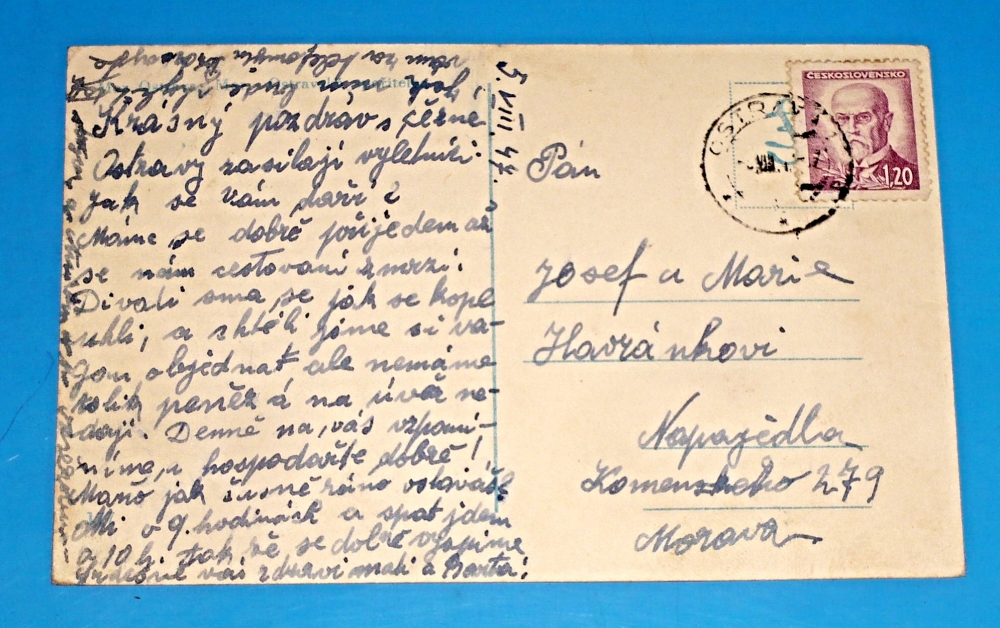 5. VIII. 47.
Krásný pozdrav s černé
Ostravy zasílají výletníci.
Jak se vám daří?
Máme se dobře přijedem až
se nám cestovaní zmrzí.
Dívali sma se jak se kope
uhlí, a chtěli jsme si va-
gon objednat ale nemáme
tolik peněz á na úvěr ne-
dají. Denně na vás vzpomí-
náme, hospodařte dobře!
Mařo jak časně ráno vstáváš?
Mi o 9. hodinách a spat jdem
o 10 h. tak že se dobře vyspíme
Srdečně vás zdraví
ČESKOSLOVENSKO
1,20
OSTRAVA
Pán
Josef a Marie
Havránkovi
Napajedla
Komenského 279
Morava